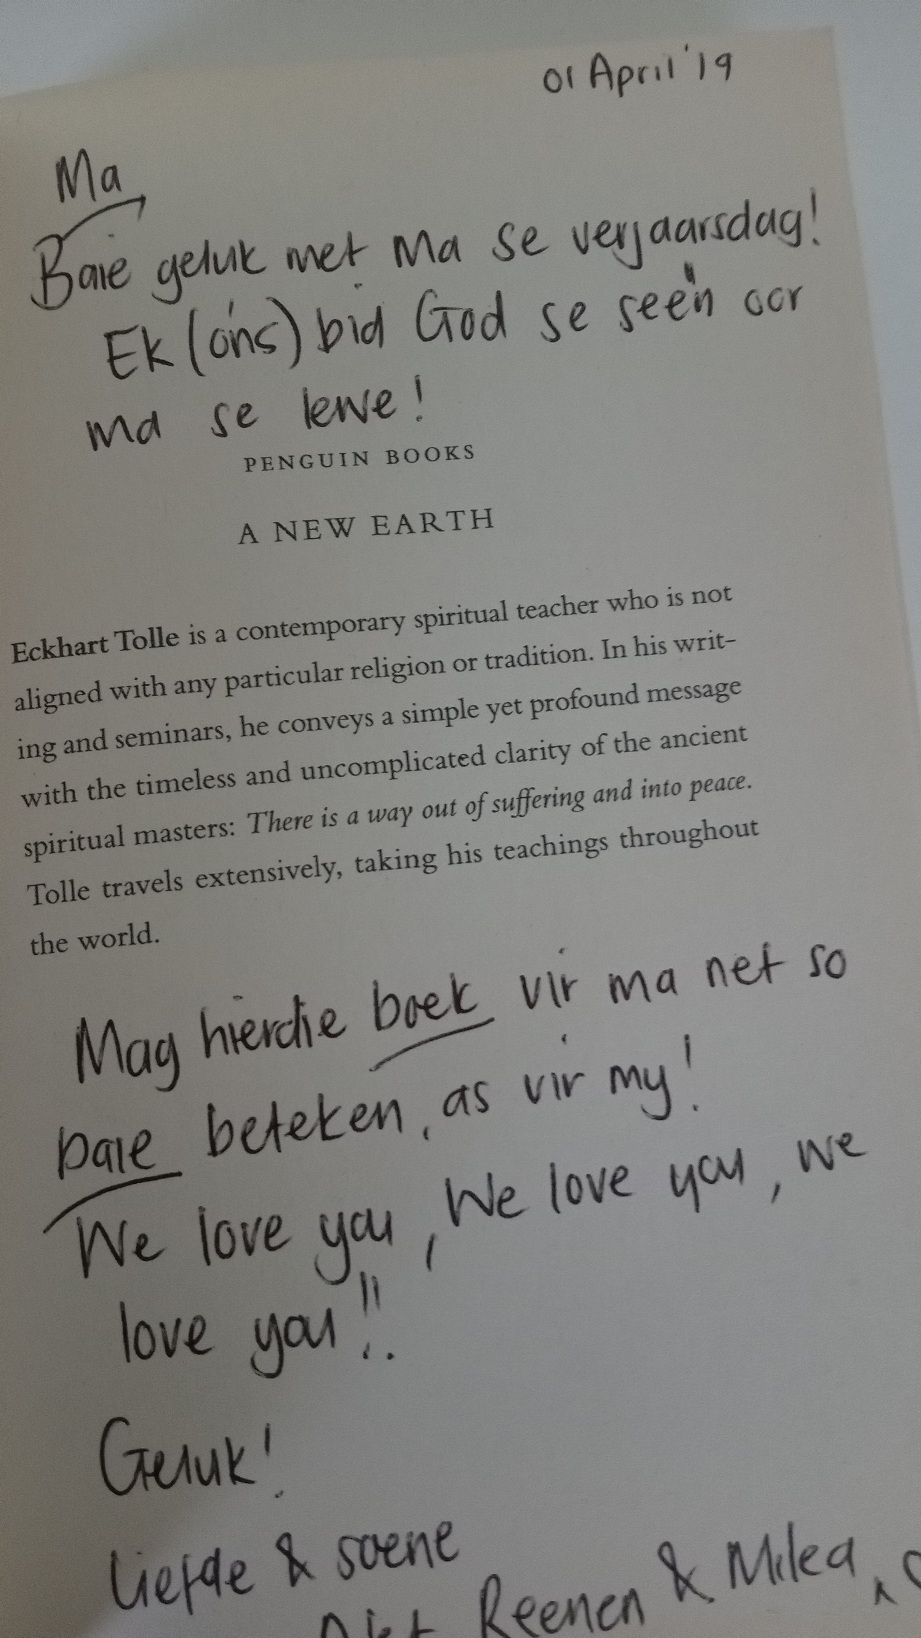 01 April '19
Ma
Baie geluk met Ma se verjaarsdag!
Ek (óns) bid God se seën oor
ma se lewe!
PENGUIN BOOKS
A NEW EARTH
Eckhart Tolle is a contemporary spiritual teacher who is not
aligned with any particular religion or tradition. In his writ-
ing and seminars, he conveys a simple yet profound message
with the timeless and uncomplicated clarity of the ancient
spiritual masters: There is a way out of suffering and into peace.
Tolle travels extensively, taking his teachings throughout
the world.
Mag hierdie boek vir ma net so
baie beteken, as vir my!
We love you, We love you, we
love you!!
Geluk!
Liefde & soene
Reenen & Milea,